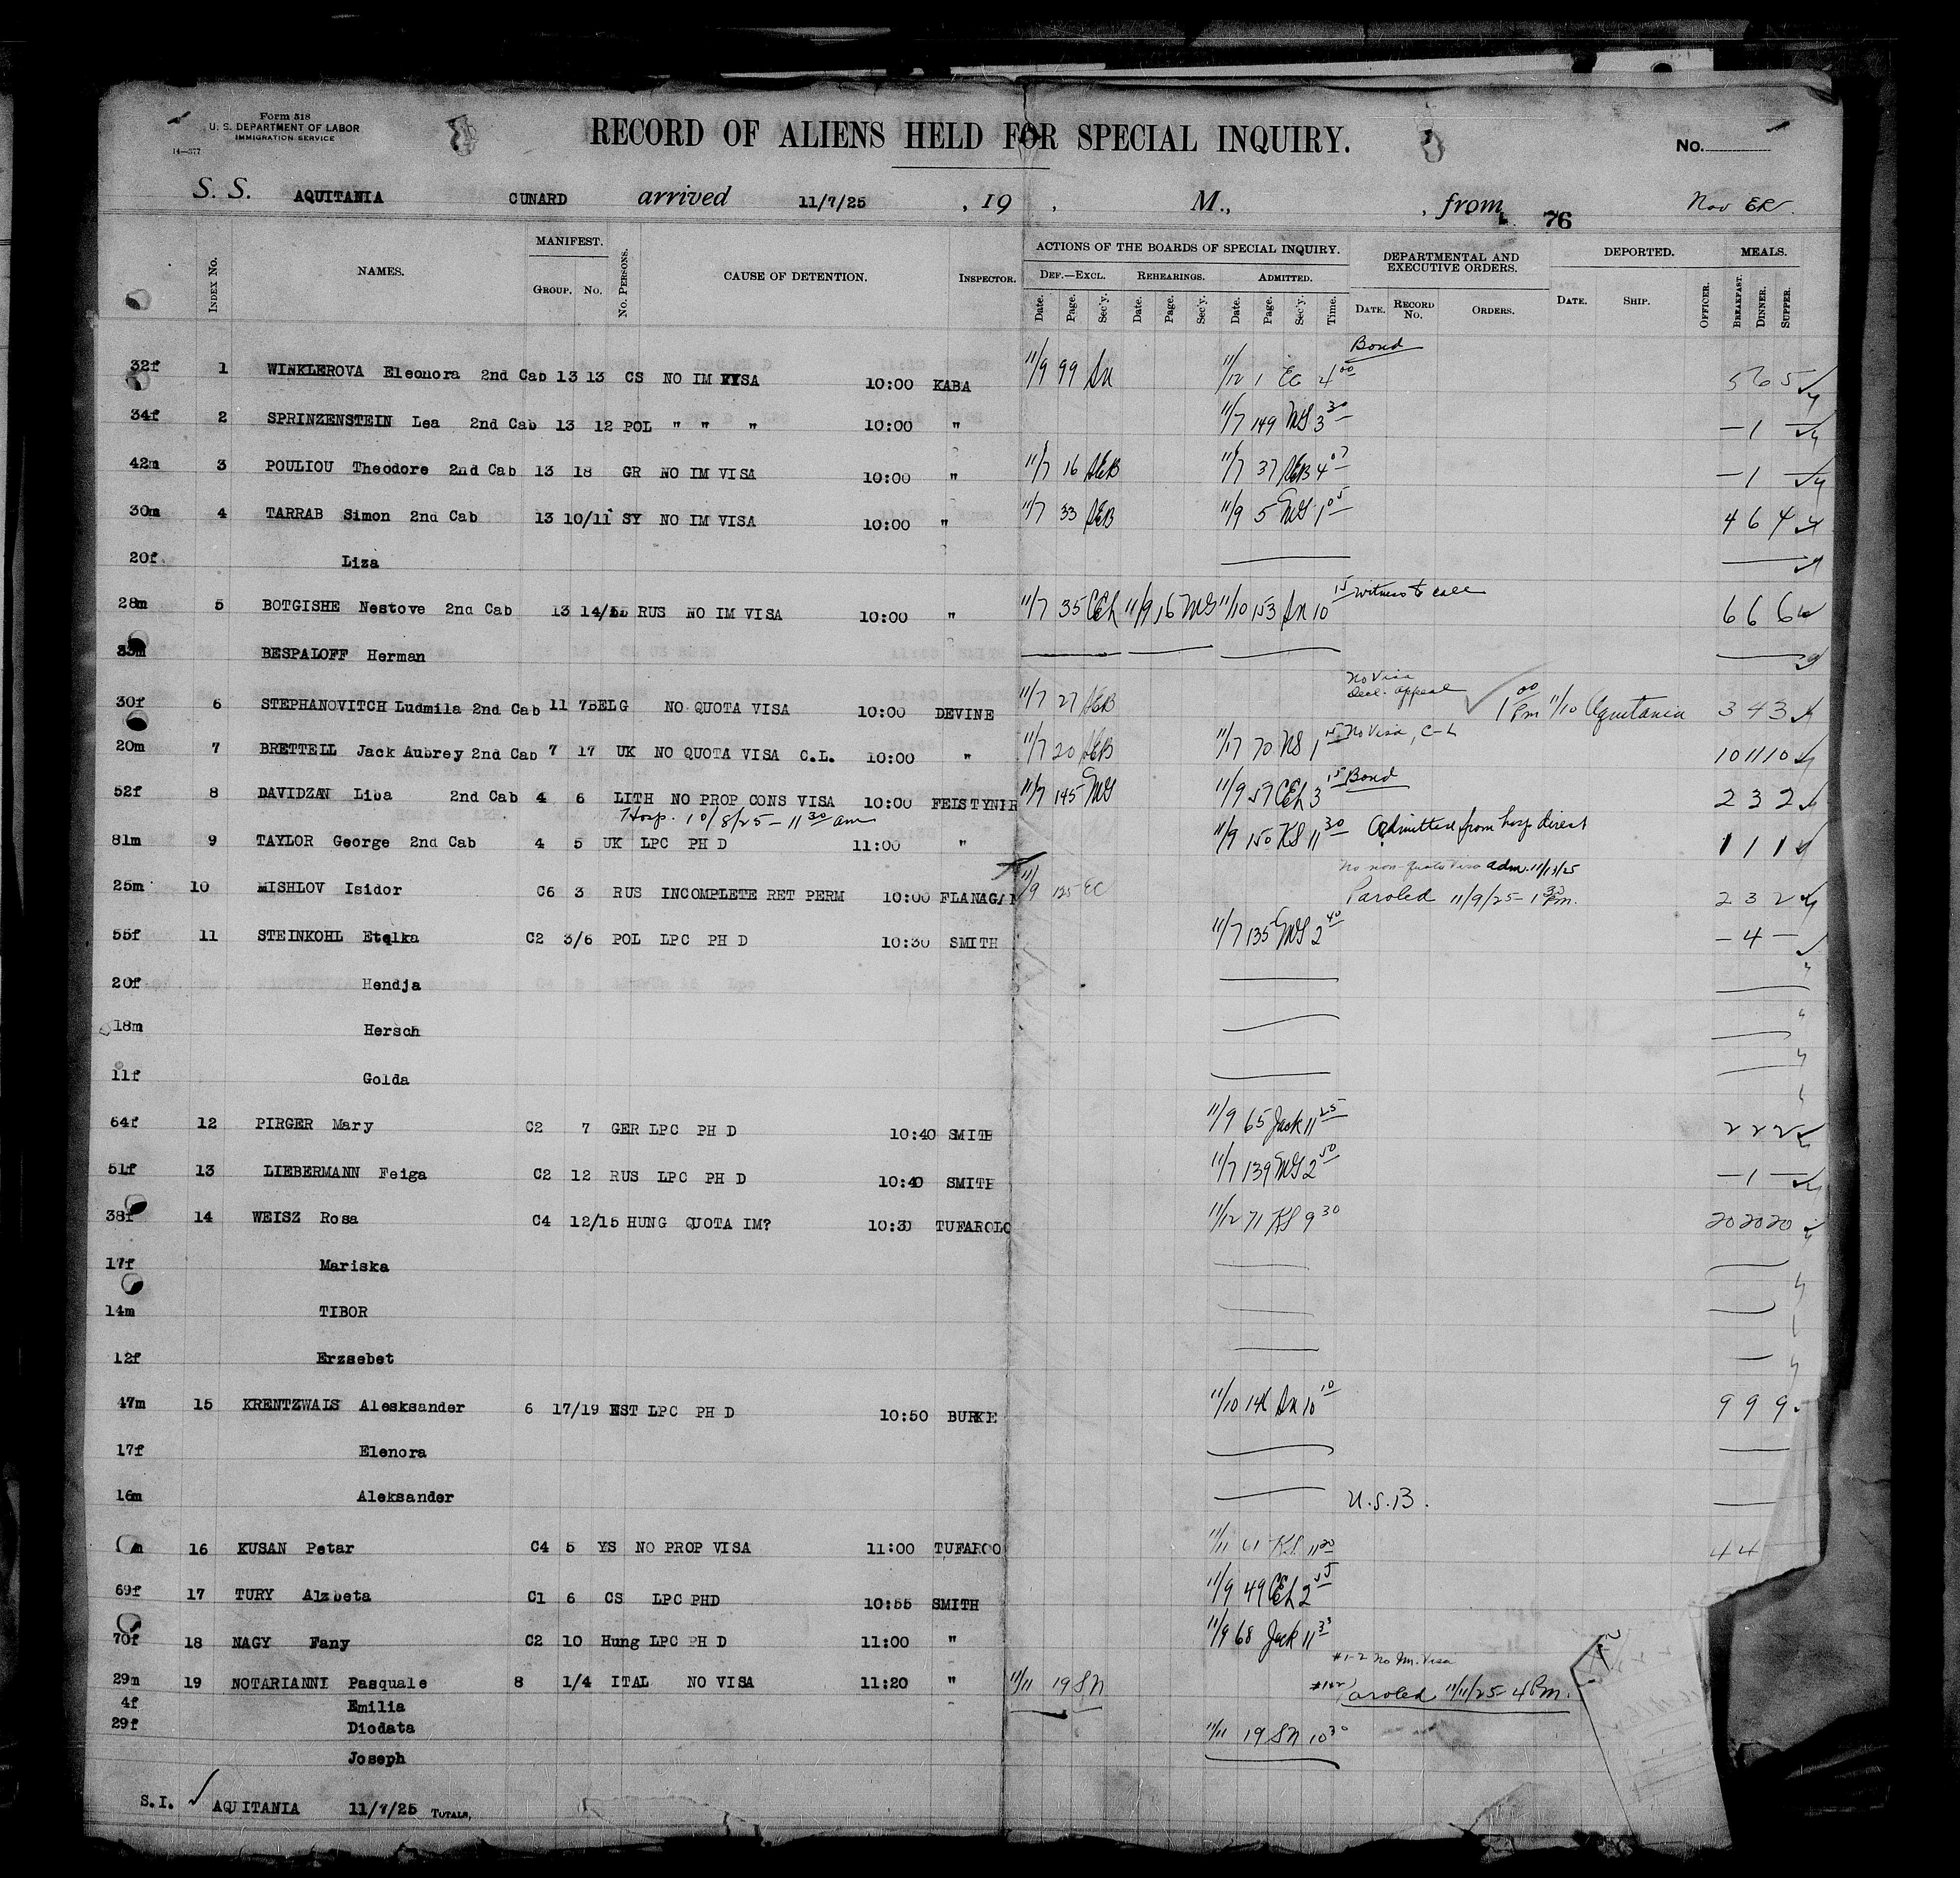 Form 518
U. S. DEPARTMENT OF LABOR
IMMIGRATION SERVICE
14—377
RECORD OF ALIENS HELD FOR SPECIAL INQUIRY.
No.
S. S. AQUITANIA CUNARD arrived 11/7/25 , 19 , M., , from 76 Nov ER.
INDEX No. NAMES. MANIFEST. GROUP. No. No. PERSONS. CAUSE OF DETENTION. INSPECTOR. ACTIONS OF THE BOARDS OF SPECIAL INQUIRY. DEPARTMENTAL AND EXECUTIVE ORDERS. DEPORTED. MEALS.
DEF.—EXCL. REHEARINGS. ADMITTED.
Date. Page. Sec'y. Date. Page. Sec'y. Date. Page. Sec'y. Time. DATE. RECORD No. ORDERS. DATE. SHIP. OFFICER. BREAKFAST. DINNER. SUPPER.
Bond
32f 1 WINKLEROVA Eleonora 2nd Cab 13 13 CS NO IM VISA 10:00 KABA 11/9 99 Sn 11/12 1 EC 4 00 5 6 5
34f 2 SPRINZENSTEIN Lea 2nd Cab 13 12 POL " " " 10:00 " 11/7 149 MG 3 30 — 1 —
42m 3 POULIOU Theodore 2nd Cab 13 18 GR NO IM VISA 10:00 " 11/7 16 AEB 11/7 37 AEB 4 07 — 1 —
30m 4 TARRAB Simon 2nd Cab 13 10/11 SY NO IM VISA 10:00 " 11/7 33 AEB 11/9 5 MG 1 05 4 6 4
20f Liza
28m 5 BOTGISHE Nestove 2nd Cab 13 14/ RUS NO IM VISA 10:00 " 11/7 35 CEh 11/9 16 MG 11/10 153 Sn 10 15 witness to call 6 6 6
BESPALOFF Herman
No Visa
Decl. appeal
30f 6 STEPHANOVITCH Ludmila 2nd Cab 11 7 BELG NO QUOTA VISA 10:00 DEVINE 11/7 27 AEB 1 00 Pm 11/10 Aquitania 3 4 3
20m 7 BRETTELL Jack Aubrey 2nd Cab 7 17 UK NO QUOTA VISA C.L. 10:00 " 11/7 20 AEB 11/17 70 NS 1 15 No Visa, C-L 10 11 10
52f 8 DAVIDZAN Liba 2nd Cab 4 6 LITH NO PROP CONS VISA 10:00 FEISTYNIR 11/7 145 MG 11/9 57 CEh 3 15 Bond 2 3 2
Hosp. 10/8/25 — 11 30 am
81m 9 TAYLOR George 2nd Cab 4 5 UK LPC PH D 11:00 " 11/9 150 KS 11 30 Admitted from hosp direct 1 1 1
No non-quota Visa adm. 11/13/25
25m 10 MISHLOV Isidor C6 3 RUS INCOMPLETE RET PERM 10:00 FLANAGAN 11/9 125 EC Paroled 11/9/25 - 1 30 Pm. 2 3 2
55f 11 STEINKOHL Etelka C2 3/6 POL LPC PH D 10:30 SMITH 11/7 135 MG 2 40 — 4 —
20f Hendja
18m Hersch
11f Golda
64f 12 PIRGER Mary C2 7 GER LPC PH D 10:40 SMITH 11/9 65 Jack 11 25 2 2 2
51f 13 LIEBERMANN Feiga C2 12 RUS LPC PH D 10:40 SMITH 11/7 139 MG 2 50 — 1 —
38f 14 WEISZ Rosa C4 12/15 HUNG QUOTA IM? 10:30 TUFAROLO 11/12 71 KS 9 30 20 20 20
17f Mariska
14m TIBOR
12f Erzsebet
47m 15 KRENTZWAIS Alesksander 6 17/19 EST LPC PH D 10:50 BURKE 11/10 146 Sn 10 10 9 9 9
17f Elenora
16m Aleksander U.S.B.
m 16 KUSAN Petar C4 5 YS NO PROP VISA 11:00 TUFAROO 11/11 61 KS 11 20 4 4
69f 17 TURY Alzbeta C1 6 CS LPC PHD 10:55 SMITH 11/9 49 CEh 2 55
70f 18 NAGY Fany C2 10 Hung LPC PH D 11:00 " 11/9 68 Jack 11
#1-2 No Im. Visa
29m 19 NOTARIANNI Pasquale 8 1/4 ITAL NO VISA 11:20 " 11/11 19 SN #1&2 Paroled 11/11/25 - 4 Pm.
4f Emilia
29f Diodata 11/11 19 SN 10 30
Joseph
S.I. AQUITANIA 11/7/25 TOTALS,